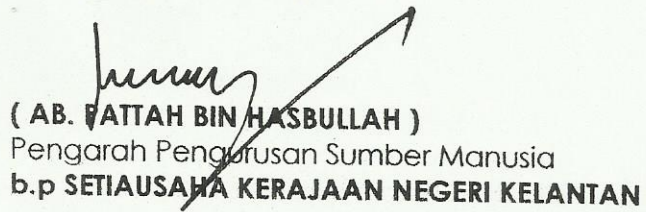 ( AB. PATTAH BIN HASBULLAH )
Pengarah Pengurusan Sumber Manusia
b.p SETIAUSAHA KERAJAAN NEGERI KELANTAN